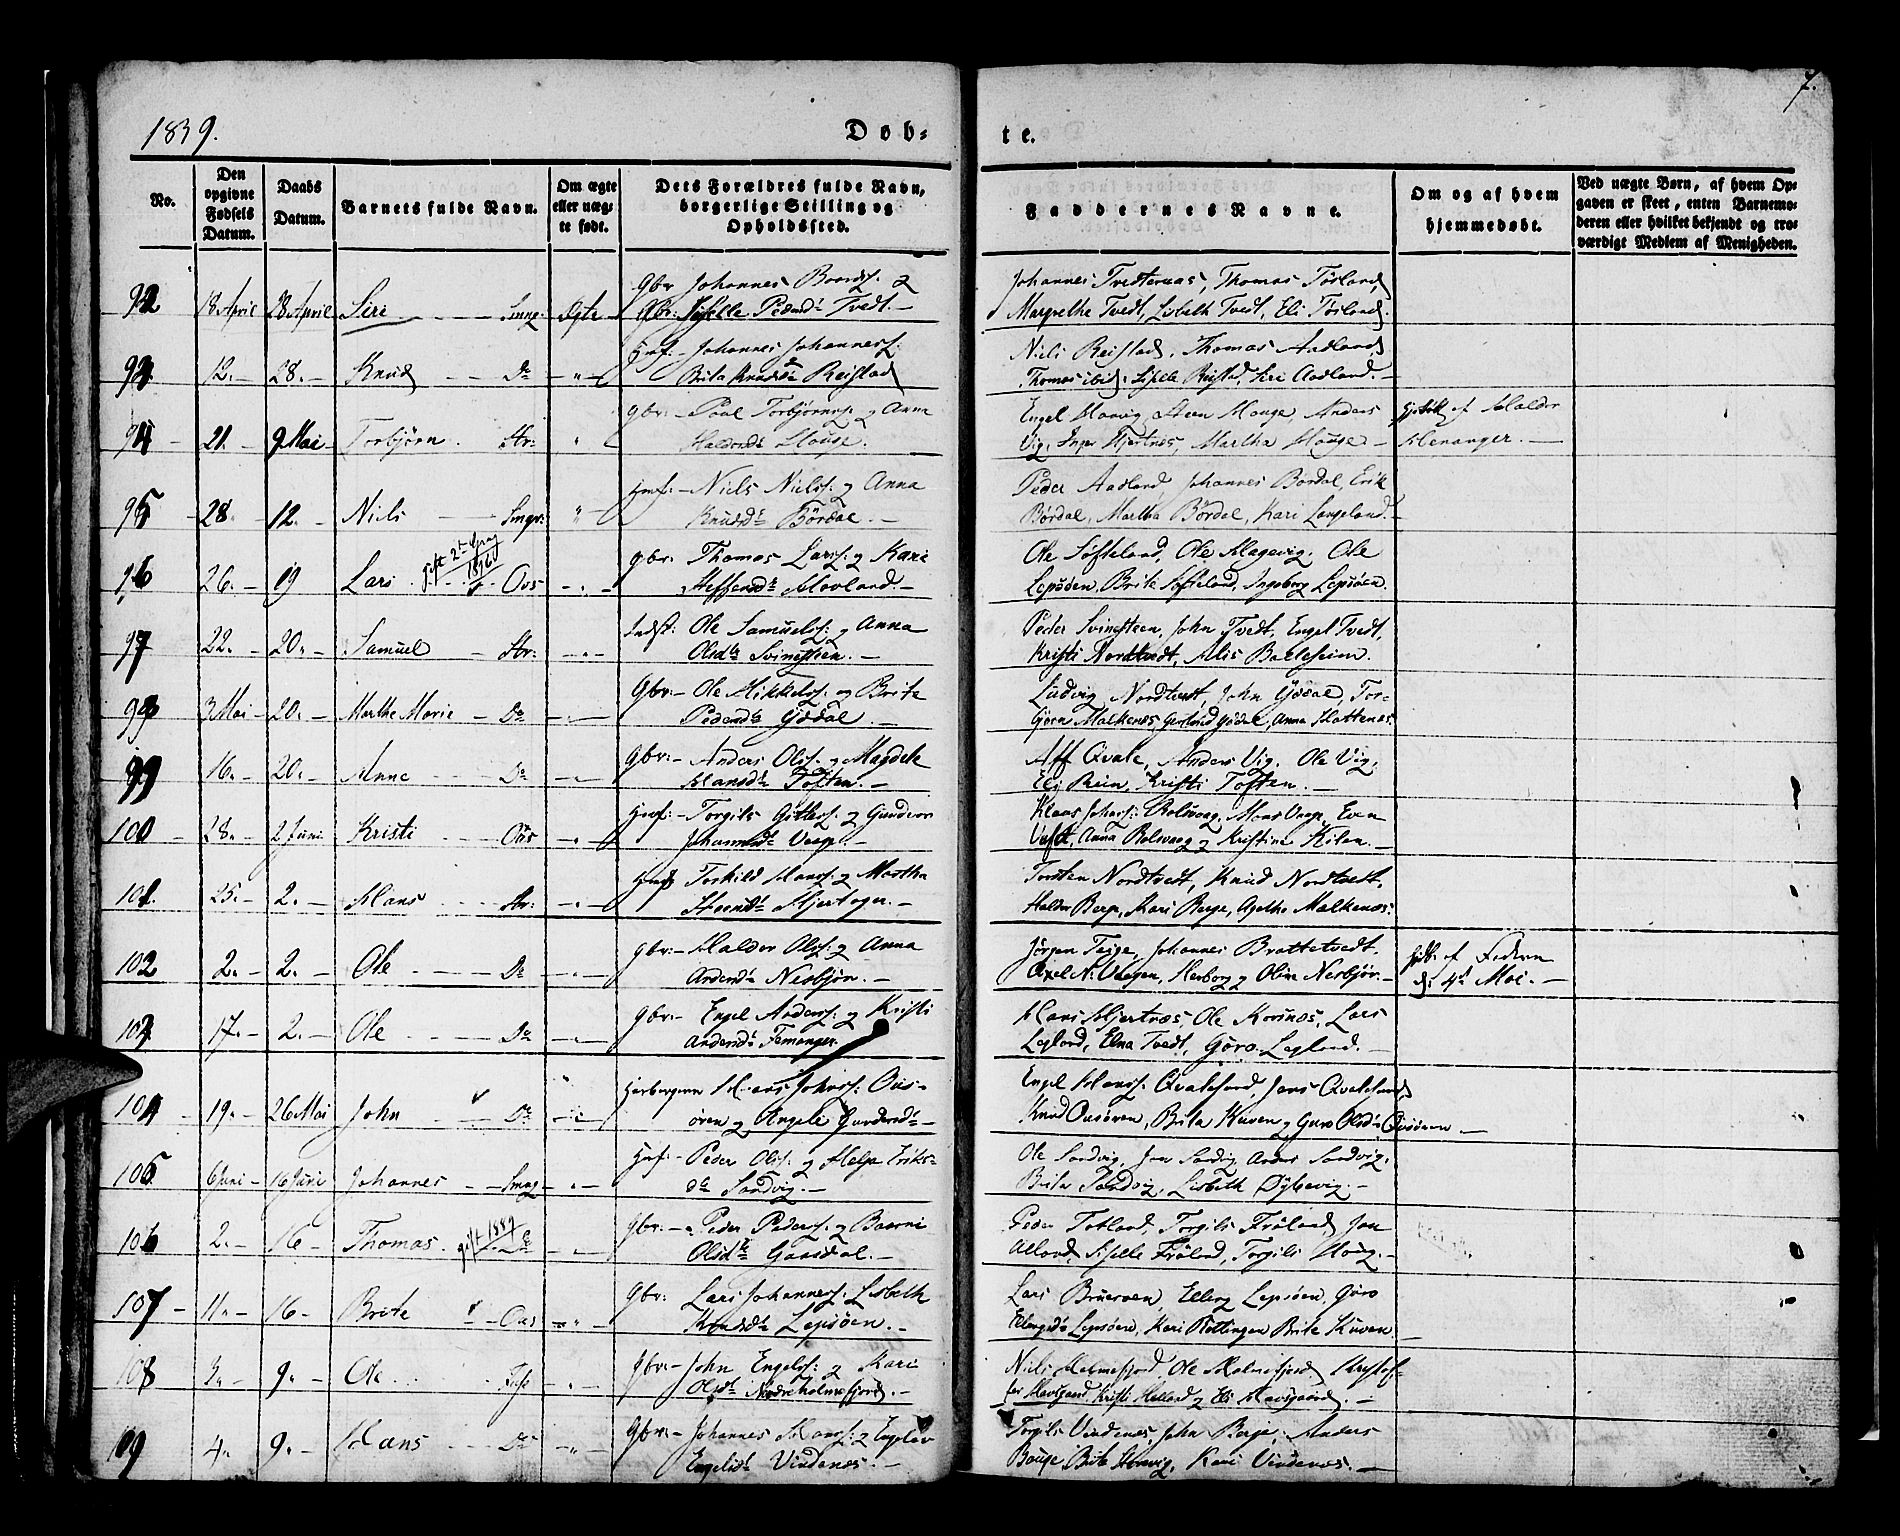 7.
1839.
Døb= te.
No.
Den opgivne Fødsels Datum.
Daabs Datum.
Barnets fulde Navn.
Om ægte eller uæg- te født.
Dets Forældres fulde Navn, borgerlige Stilling og Opholdssted.
Faddernes Navne.
Om og af hvem hjemmedøbt.
Ved uægte Børn, af hvem Op- gaven er skeet, enten Barnemo- deren eller hvilket bekjendt og tro- værdigt Medlem af Menigheden.
92 18 April 28 April Siri Smng: Ægte Gbr Johannes Baards: og
Gbr: Siselle Pedersd: Tvedt.
Johannes Tvedternæs, Thomas Tørland,
Margrethe Tvedt, Lisbeth Tvedt, Eli Tørland.
93. 12. 28. Knud Do " Hmf. Johannes Johanness:
Brita Knudsd Reistad
Niels Reistad, Thomas Aadland,
Thomas ibid, Siselle Reistad, Siri Aadland.
94 21. 9 Mai Torbjørn Str: " Gbr: Poul Torbjørns: og Anna
Haldorsd: Hauge.
Engel Haavig, Hauge, Anders
Vig, Inger Hjertnæs, Martha Hauge
af Haldor
Henanger.
95 28. 12. Niels Smgr: " Hmf: Niels Niels: og Anna
Knudsd: Bördal.
Peder Aadland, Johannes Bördal, Erik
Bördal, Martha Bördal, Kari Langeland.
96 26. 19 Lars gift 2t 1861 Ous " Gbr: Thomas Lars: og Kari
Steffensd: Hovland.
Ole Søfteland, Ole Hagevig, Ole
Lepsøen, Brite Søfteland, Ingeborg Lepsøen.
97 22. 20. Samuel Str: " Indst: Ole Samuels: og Anna
Olsd: Svinesteen.
Peder Svinesteen, John Tvedt, Engel Tvedt,
Kristi Nordtvedt, Alis Balleseim.
98 3 Mai 20. Marthe Marie Do " Gbr: Ole Mikkels: og Brite
Pedersd: Gjødal.
Ludvig Nordtvedt, John Gjødal, Tor-
Gjern Malkenæs, Gertrud Gjødal, Anna Skottenæs.
99 16. 20. Anne Do " Gbr: Anders Ols: og Magdele
Hansd: Toften.
Aff Qvale, Anders Vig, Ole Vig,
Eli Rein, Kristi Toften.
100 28. 2 Juni Kristi Ous " Hmf: Torgils Gitles: og Gundvor
Johannesd: Vaage.
Klaas Johans: Rolsvaag, Mons Vaage, Even
Anna Rolsvaag og Kristine Kilen.
101. 25. 2. Hans Str: " Hmf Torkild Hans: og Martha
Steensd: Hjertager.
Torsten Nordtvedt, Knud Nordtvedt,
Haldor Berge, Kari Berge, Agethe Malkenæs.
102 2. 2. Ole Do " Gbr: Haldor Ols: og Anna
Andersd: Nesbjør.
Jørgen Teige, Johannes Brattetvedt,
Axel N: Vaagen, Herborg og Oline Nesbjør.
Hdb. af Faderen
d: 4d Mai.
103 17. 2. Ole Do " Gbr: Engel Anders: og Kristi
Andersd: Femanger.
Hans Hjertnæs, Ole Korsnæs, Lars
Legland, Elna Tvedt, Gjøro Legland.
104 19. 26 Mai John Do " Herbergerer Hans Johns: Ous-
ören og Angele Gundersd:
Engel Hans: Qvalesund, Jens Qvalesund,
Knud Ousören, Brita Kuven og Guro Olsd: Ousören
105 6 Juni 16 Juni Johannes Smng " Hmf: Peder Ols: og Helje Eriks-
d: Sandvig.
Ole Sandvig, Jon Sandvig, Anders Sandvig,
Brita Sandvig, Lisbeth Dybevig.
106 2. 16 Thomas gift 1889 Do " Gbr: Peder Peders: og Baarni
Olsd: Gaasdal.
Peder Totland, Torgils Frøland, Jon
Alland, Siselle Frøland, Torgils Haug.
107 11. 16 Brite Ous " Gbr: Lars Johanness: Lisbeth
Knudsd: Lepsøen.
Lars Bruerøen, Elling Lepsøen, Gjøro
Ellingsd: Lepsøen, Kari Røttingen Brite Kuven
108 3. 9. Ole Fuse " Gbr: John Engels: og Kari
Olsd: Nedreholmefjord.
Niels Holmefjord, Ole Holmefjord, Kristof-
fer Havsgaard, Kristi Helland og Eli Havsgaard.
109 4. 9. Hans Do " Gbr: Johannes Hans: og Engelev
Engelsd: Vindenæs.
Torgils Vindenæs, John Berge, Anders
Bauge, Brite Haavig, Kari Vindenæs.